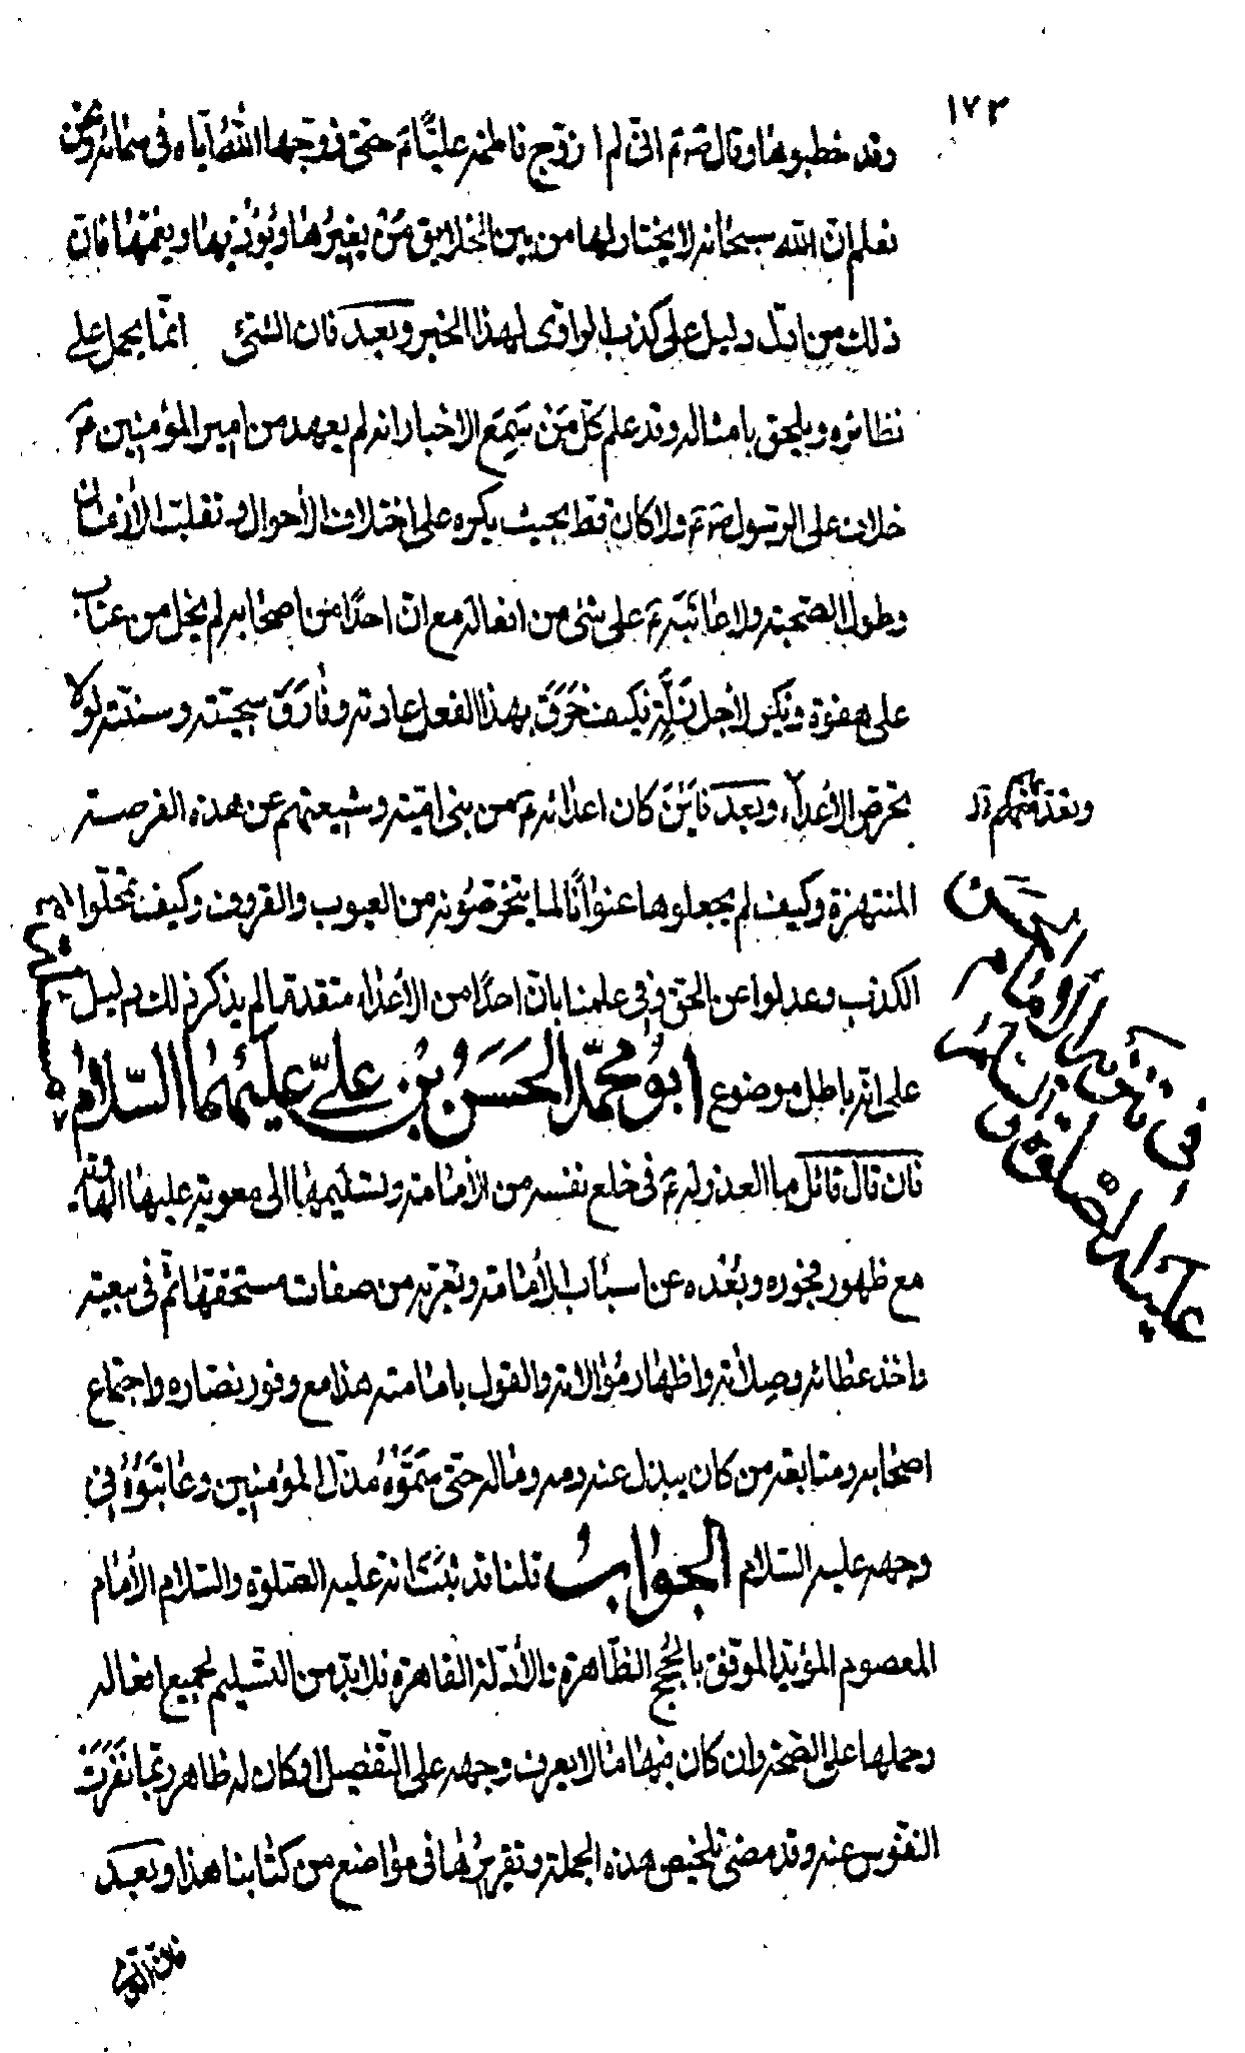 ١٧٣
وقد خطبوها وقال صۤ عۤ انّى لم ازوّج فاطمة عليّا عۤ حتّى زوّجها اللّه ايّاه فى سمائه ونحن
نعلم انّ اللّه سبحانه لا يختار لها من بين الخلايق مَنْ يغيرُها ويُؤذيها ويغمّها فانّ
ذلك من ادلّ دليل على كذب الراوى لهذا الخبر وبعد فان الشئ انّما يحمل على
نظائره ويلحق بامثاله وقد علم كلّ مَنْ سَمِعَ الاخبار انه لم يعهد من امير المؤمنين عۤ
خلاف على الرّسول صۤ عۤ ولا كان قطّ بحيث يكره على اختلاف الأحوال وتقلب الأزمان
وطول الصّحبة ولا عاتَبَه عۤ على شئ من افعاله مع انّ احدًا من اصحابه لم يخل من عتاب
على هفوة ونكير لأجل زلَّةٍ فكيف خَرَقَ بهذا الفعل عادته وفارَقَ سجيّته وسنّته لولا
تخرّص الأعداء وبعد فاَيْنَ كان اعدائه عۤ من بنى اميّة وشيعتهم عن هذه الفرصة
وتعدّيهم
المنتهزة وكيف لم يجعلوها عنوانًا لما يتخرّصُونه من العيوب والقروف وكيف تمحّلوا
الكذب وعدلوا عن الحق وفى علمنا بانّ احدًا من الأعداء متقدمًا لم يذكر ذلك دليل
على انه باطل موضوع ابو محمّد الحَسَن بن علىّ عليهما السّلام
فى تنزيه الامام الحسن
عليه الصلوة و
فان قال قائل ما العذر له عۤ فى خلع نفسه من الأمامة وتسليمها الى معوية
مع ظهور فجوره وبُعْده عن اسباب الأمامة وتعريه من صفات مستحقّها ثمّ فى بيعته
واخذ عطائه وصِلاته واظهار مُوالاته والقول بامامته هذا مع وفور نصاره واجتماع
اصحابه ومتابعة من كان يبذل عنه دمه وماله حتّى سَمَّوْهُ مذلّ المؤمنين وعاتَبَوُهُ فى
وجهه عليه السّلام الجواب قلنا قد ثبَتَ انه عليه الصّلوة والسّلام الأمام
المعصوم المؤيّد الموفّق بالحُجج الظّاهرة والأدلة القاهرة فلابدّ من التّسليم لجميع افعاله
وحملها على الصّحة وان كان فيها ما لا يعرف وجهه على التّفصيل او كان له ظاهر ربّما نَفَرَتْ
النّفوس عنه وقد مضى تلخيص هذه الجملة وتقريرُها فى مواضع من كتابنا هذا وبعد
فان